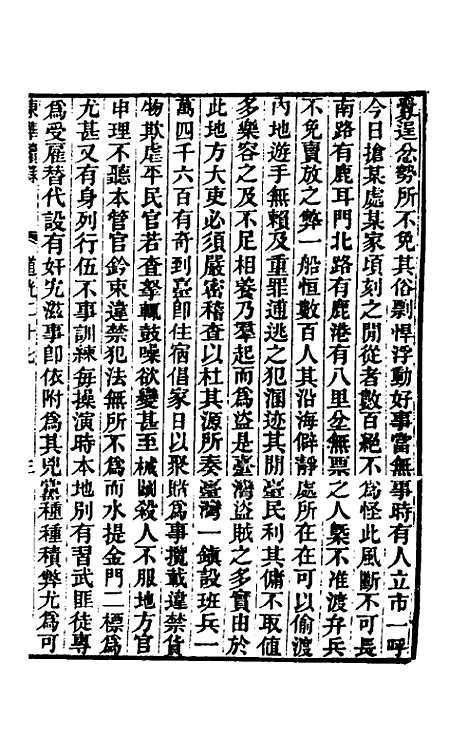 釁逞忿勢所不免其俗剽悍浮動好事當無事時有人立市一呼
今日搶某處某家頃刻之閒從者數百絕不爲怪此風斷不可長
南路有鹿耳門北路有鹿港有八里坌無票之人槩不准渡弁兵
不免賣放之弊一船恒數百人其沿海僻靜處所在在可以偷渡
內地遊手無賴及重罪逋逃之犯溷迹其閒臺民利其傭不取值
多樂容之及不足相養乃羣起而爲盜是臺灣盜賊之多實由於
此地方大吏必須嚴密稽查以杜其源所奏臺灣一鎭設班兵一
萬四千六百有奇到臺卽住宿倡家日以聚賭爲事攬載違禁貨
物欺虐平民官若查拏輒鼓噪欲變甚至械鬭殺人不服地方官
申理不聽本管官鈐束違禁犯法無所不爲而水提金門二標爲
尤甚又有身列行伍不事訓練每操演時本地別有習武匪徒專
爲受雇替代設有奸宄滋事卽依附爲其兇黨種種積弊尤爲可
東華續錄 道光二十七 三